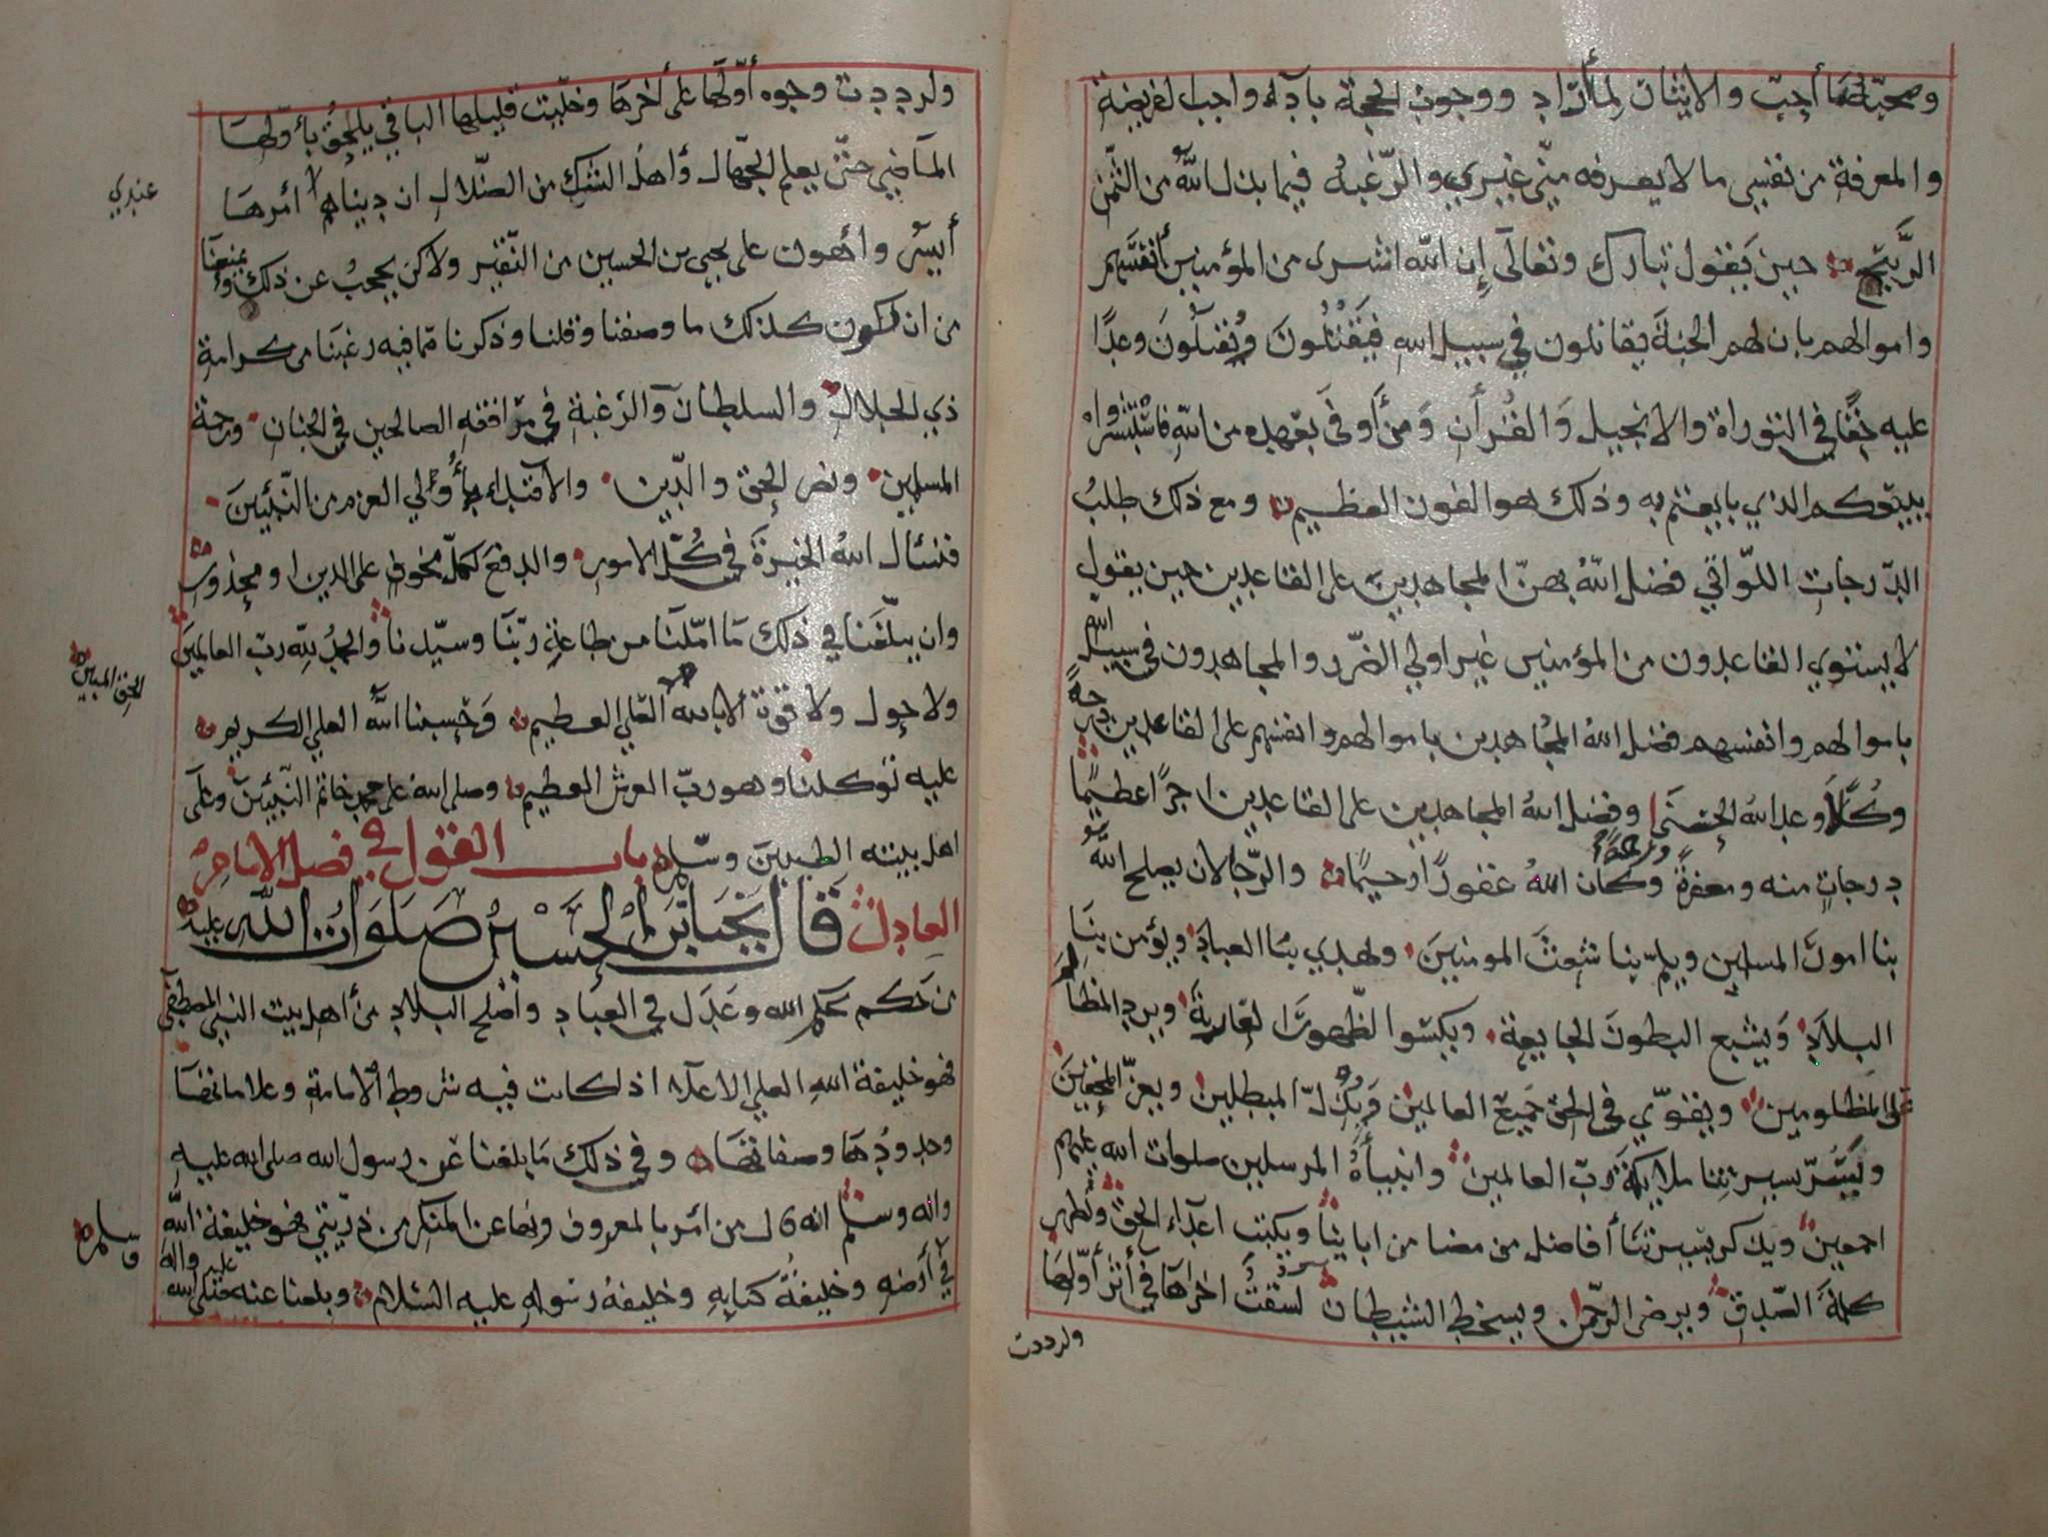 ومحبة لما أحب والايثار لما أراد ووجوب الحجة بادآء واجب لفريضة
والمعرفة من نفسي ما لا يعرفه مني غيري والرغبة فيما بذل الله من الثمن
الربيح حين يقول تبارك وتعالى إن الله اشترى من المؤمنين أنفسهم
واموالهم بان لهم الجنة يقاتلون في سبيل الله فيقتلون ويقتلون وعدا
عليه حقا في التوراة والانجيل والقرآن ومن أوفى بعهده من الله فاستبشروا
ببيعكم الذي بايعتم به وذلك هو الفوز العظيم ومع ذلك طلب
الدرجات اللواتي فضل الله بهن المجاهدين على القاعدين حين يقول
لا يستوي القاعدون من المؤمنين غير اولي الضرر والمجاهدون في سبيل الله
باموالهم وانفسهم فضل الله المجاهدين باموالهم وانفسهم على القاعدين درجة
وكلا وعد الله الحسنى وفضل الله المجاهدين على القاعدين اجرا عظيما
درجات منه ومغفرة ورحمة وكان الله غفورا رحيما والرجا لان يصلح الله
بنا امور المسلمين ويلم بنا شعث المومنين ولهدي بنا العباد ويؤمن بنا
البلاد ويشبع البطون الجايعة ويكسوا الظهور العارية ويرد المظالم
على المظلومين ويقوي في الحق جميع العالمين ويذل المبطلين ويعز المحقين
ويسر بسيرتنا ملايكة رب العالمين وانبيآءه المرسلين صلوات الله عليهم
اجمعين ويذكر بسيرتنا أفاضل من مضا من اباينا ويكبت اعدآء الحق ولظهر
كلمة الصدق ويرضى الرحمن ويسخط الشيطان لسقت اخراها في أثر أولها
ولرددت
ولرددت وجوه أولها على أخرها وخليت قليلها الباقي يلحق بأولها
الماضي حتى يعلم الجهال وأهل الشك من الضلال ان دنياهم لا أمرها
عندي
أيسر وأهون على يحيى بن الحسين من النقير ولاكن يحجب عن ذلك ويمنعنا
من ان تكون كذلك ما وصفنا وقلنا وذكرنا مما فيه رغبنا من كرامة
ذي الجلال والسلطان والرغبة في مرافقه الصالحين في الجنان ورحمة
المسلمين ونصر الحق والدين والاقتداء بأولي العزم من النبيين
فنسأل الله الخيرة في كل الامور والدفع لكل مخوف على الدين او محذور
وان يبلغنا في ذلك ما املنا من طاعة ربنا وسيدنا والحمد لله رب العالمين
الحق المبين
ولا حول ولا قوة الا بالله العلي العظيم وحسبنا الله العلي الكريم
عليه توكلنا وهو رب العرش العظيم وصلى الله على محمد خاتم النبيين وعلى
اهل بيته الطيبين وسلم باب القول في فضل الامام
العادل قال يحيى بن الحسين صلوات الله عليه
من حكم بحكم الله وعدل في العباد واصلح البلاد من أهل بيت النبي المصطفى
فهو خليفة الله العلي الاعلا اذ كانت فيه شروط الامامة وعلاماتها
وحدودها وصفاتها وفي ذلك ما بلغنا عن رسول الله صلى الله عليه
واله وسلم انه قال من أمر بالمعروف ونها عن المنكر من ذريتي فهو خليفة الله
في أرضه وخليفة كتابه وخليفة رسوله عليه السلام وبلغنا عنه صلى الله عليه واله
وسلم